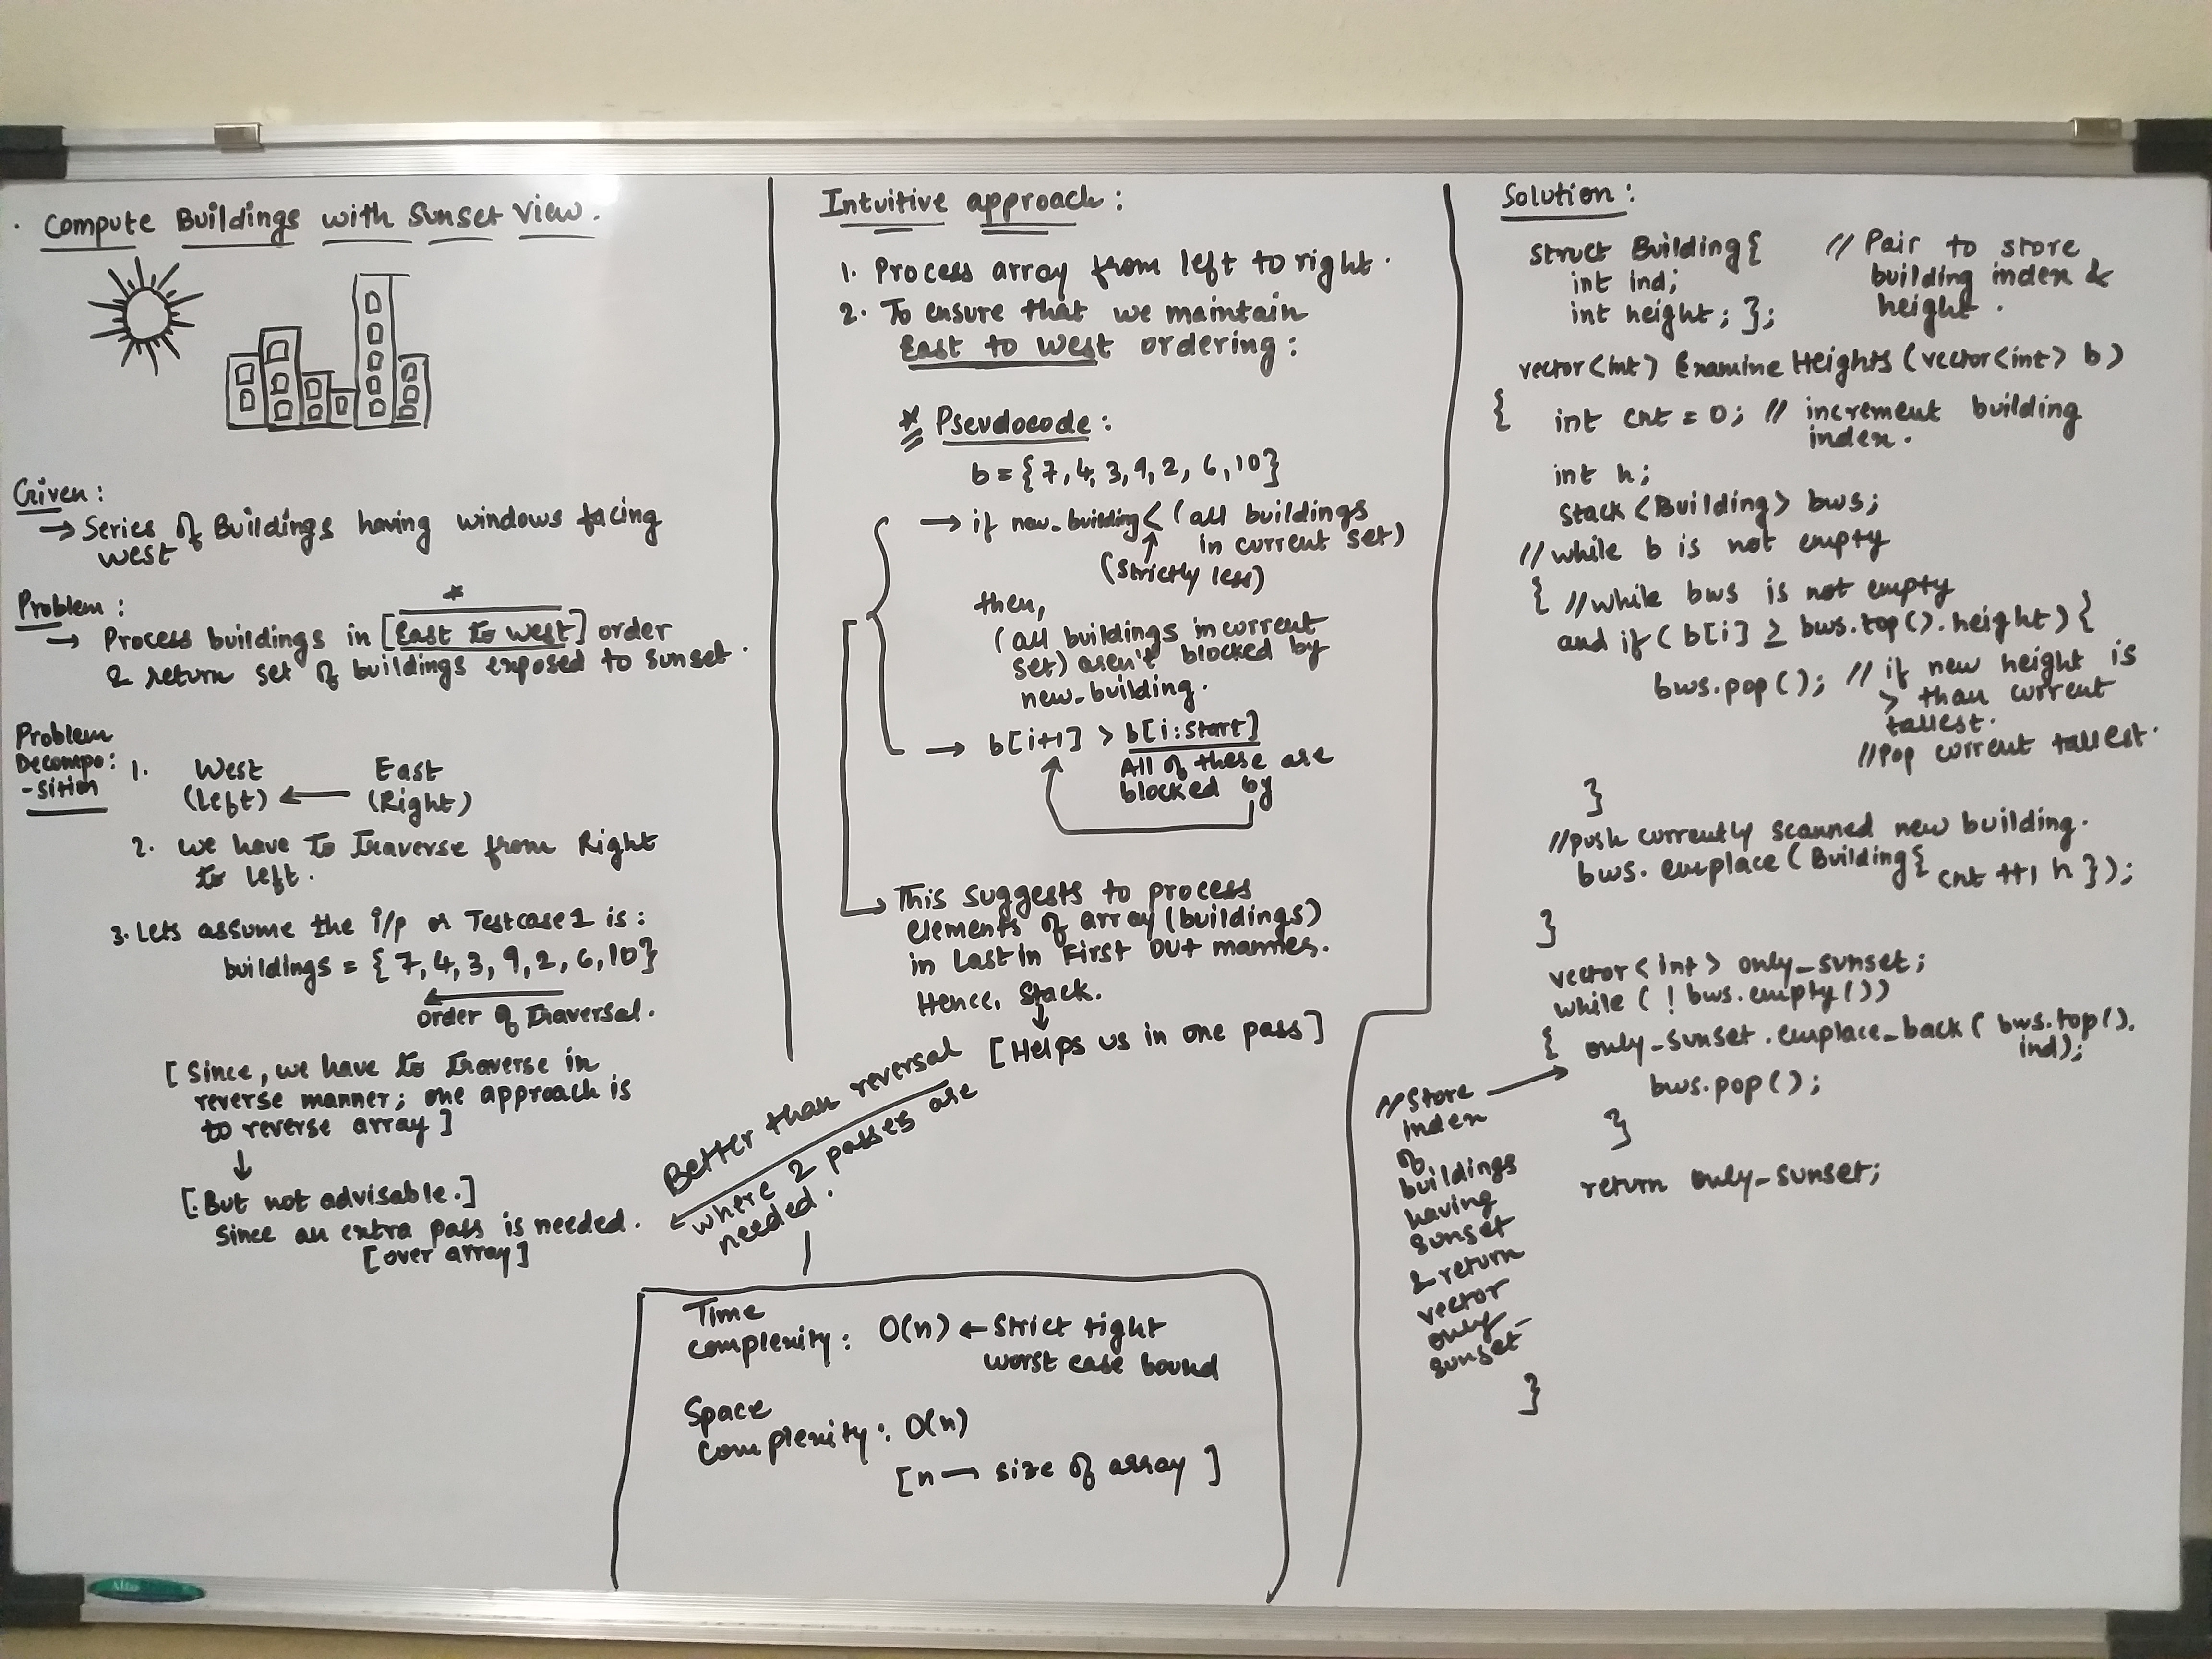 · Compute Buildings with Sunset View.
Given:
→ Series of Buildings having windows facing
west
Problem:
*
→ Process buildings in [East to west] order
& return set of buildings exposed to sunset.
Problem
Decompo:
-sition
1. West East
(Left) ← (Right)
2. we have to Traverse from Right
to left.
3. Lets assume the i/p or Testcase 1 is:
buildings = {7, 4, 3, 9, 2, 6, 10}
order of Traversal.
[Since, we have to Traverse in
reverse manner; one approach is
to reverse array]
↓
[But not advisable.]
since an extra pass is needed.
[over array]
Intuitive approach:
1. Process array from left to right.
2. To ensure that we maintain
East to west ordering:
* Pseudocode:
b = {7, 4, 3, 9, 2, 6, 10}
→ if new_building < (all buildings
in current set)
(Strictly less)
then,
(all buildings in current
set) aren't blocked by
new_building.
→ b[i+1] > b[i:start]
All of these are
blocked by
This suggests to process
elements of array (buildings)
in Last in First Out manner.
Hence, Stack.
↓
[Helps us in one pass]
Better than reversal
where 2 passes are
needed.
Time
complexity: O(n) ← Strict tight
worst case bound
Space
complexity: O(n)
[n → size of array]
Solution:
struct Building{ // Pair to store
int ind; building index &
int height; }; height.
vector<int> Examine Heights (vector<int> b)
{ int cnt = 0; // increment building
index.
int h;
stack <Building> bws;
// while b is not empty
{ // while bws is not empty
and if ( b[i] ≥ bws.top().height) {
bws.pop(); // if new height is
> than current
tallest.
//Pop current tallest.
}
//push currently scanned new building.
bws.emplace(Building{ cnt ++, h });
}
vector<int> only_sunset;
while ( ! bws.empty())
{ only_sunset.emplace_back( bws.top().
ind);
bws.pop();
}
//Store
index
of
buildings
having
sunset
& return
vector
only_
sunset
return only_sunset;
}
Alto